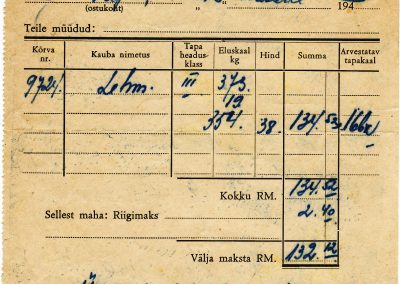 (ostukoht) 194
Teile müüdud:
Kõrva nr. Kauba nimetus Tapa headus- klass Eluskaal kg Hind Summa Arvestatav tapakaal
9721. Lehm. III 373.
19
354. 38. 134.52 166
Kokku RM. 134.52
Sellest maha: Riigimaks 2.40
Välja maksta RM. 132.12